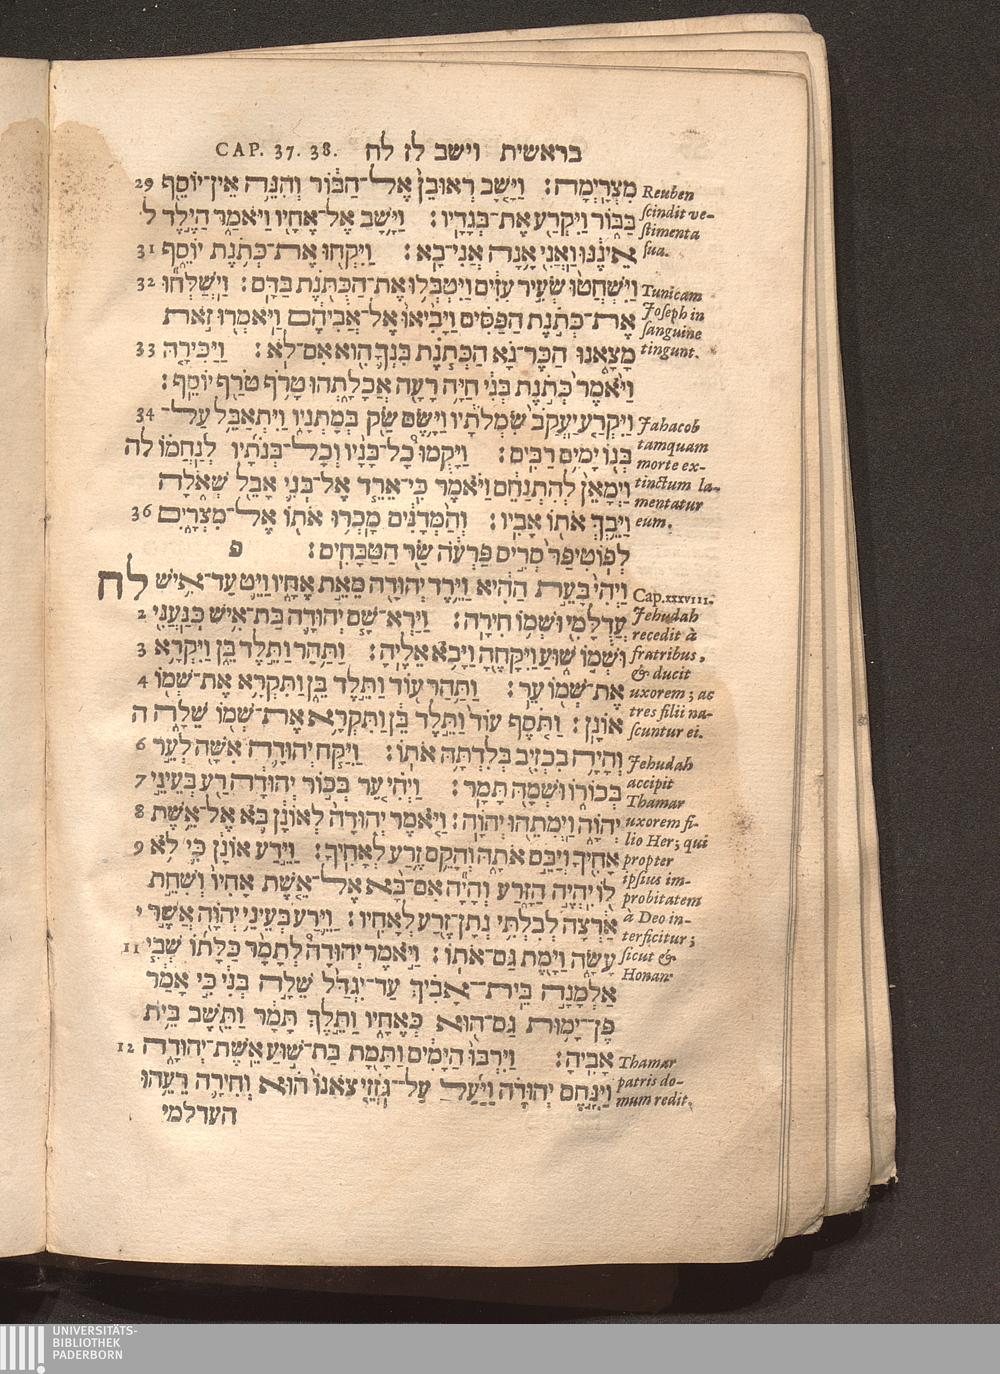 CAP. 37. 38. בראשית וישב לז לח
מִצְרָיְמָה׃ וַיָּשָׁב רְאוּבֵן אֶל־הַבּוֹר וְהִנֵּה אֵין־יוֹסֵף 29
בַּבּוֹר וַיִּקְרַע אֶת־בְּגָדָיו׃ וַיָּשָׁב אֶל־אֶחָיו וַיֹּאמַר הַיֶּלֶד ל
אֵינֶנּוּ וַאֲנִי אָנָה אֲנִי־בָא׃ וַיִּקְחוּ אֶת־כְּתֹנֶת יוֹסֵף 31
וַיִּשְׁחֲטוּ שְׂעִיר עִזִּים וַיִּטְבְּלוּ אֶת־הַכֻּתֹּנֶת בַּדָּם׃ וַיְשַׁלְּחוּ 32
אֶת־כְּתֹנֶת הַפַּסִּים וַיָּבִיאוּ אֶל־אֲבִיהֶם וַיֹּאמְרוּ זֹאת
מָצָאנוּ הַכֶּר־נָא הַכְּתֹנֶת בִּנְךָ הִוא אִם־לֹא׃ וַיַּכִּירָהּ 33
וַיֹּאמֶר כְּתֹנֶת בְּנִי חַיָּה רָעָה אֲכָלָתְהוּ טָרֹף טֹרַף יוֹסֵף׃
וַיִּקְרַע יַעֲקֹב שִׂמְלֹתָיו וַיָּשֶׂם שַׂק בְּמָתְנָיו וַיִּתְאַבֵּל עַל־ 34
בְּנוֹ יָמִים רַבִּים׃ וַיָּקֻמוּ כָל־בָּנָיו וְכָל־בְּנֹתָיו לְנַחֲמוֹ לה
וַיְמָאֵן לְהִתְנַחֵם וַיֹּאמֶר כִּי־אֵרֵד אֶל־בְּנִי אָבֵל שְׁאֹלָה
וַיֵּבְךְּ אֹתוֹ אָבִיו׃ וְהַמְּדָנִים מָכְרוּ אֹתוֹ אֶל־מִצְרָיִם 36
לְפוֹטִיפַר סְרִיס פַּרְעֹה שַׂר הַטַּבָּחִים׃ פ
וַיְהִי בָּעֵת הַהִיא וַיֵּרֶד יְהוּדָה מֵאֵת אֶחָיו וַיֵּט עַד־אִישׁ לח
עֲדֻלָּמִי וּשְׁמוֹ חִירָה׃ וַיַּרְא־שָׁם יְהוּדָה בַּת־אִישׁ כְּנַעֲנִי 2
וּשְׁמוֹ שׁוּעַ וַיִּקָּחֶהָ וַיָּבֹא אֵלֶיהָ׃ וַתַּהַר וַתֵּלֶד בֵּן וַיִּקְרָא 3
אֶת־שְׁמוֹ עֵר׃ וַתַּהַר עוֹד וַתֵּלֶד בֵּן וַתִּקְרָא אֶת־שְׁמוֹ 4
אוֹנָן׃ וַתֹּסֶף עוֹד וַתֵּלֶד בֵּן וַתִּקְרָא אֶת־שְׁמוֹ שֵׁלָה ה
וְהָיָה בִכְזִיב בְּלִדְתָּהּ אֹתוֹ׃ וַיִּקַּח יְהוּדָה אִשָּׁה לְעֵר 6
בְּכוֹרוֹ וּשְׁמָהּ תָּמָר׃ וַיְהִי עֵר בְּכוֹר יְהוּדָה רַע בְּעֵינֵי 7
יְהוָֹה וַיְמִתֵהוּ יְהוָֹה׃ וַיֹּאמֶר יְהוּדָה לְאוֹנָן בֹּא אֶל־אֵשֶׁת 8
אָחִיךָ וְיַבֵּם אֹתָהּ וְהָקֵם זֶרַע לְאָחִיךָ׃ וַיֵּדַע אוֹנָן כִּי לֹּא 9
לוֹ יִהְיֶה הַזָּרַע וְהָיָה אִם־בָּא אֶל־אֵשֶׁת אָחִיו וְשִׁחֵת
אַרְצָה לְבִלְתִּי נְתָן־זֶרַע לְאָחִיו׃ וַיֵּרַע בְּעֵינֵי יְהוָֹה אֲשֶׁר י
עָשָׂה וַיָּמֶת גַּם־אֹתוֹ׃ וַיֹּאמֶר יְהוּדָה לְתָמָר כַּלָּתוֹ שְׁבִי 11
אַלְמָנָה בֵית־אָבִיךְ עַד־יִגְדַּל שֵׁלָה בְנִי כִּי אָמַר
פֶּן־יָמוּת גַּם־הוּא כְּאֶחָיו וַתֵּלֶךְ תָּמָר וַתֵּשֶׁב בֵּית
אָבִיהָ׃ וַיִּרְבּוּ הַיָּמִים וַתָּמָת בַּת־שׁוּעַ אֵשֶׁת־יְהוּדָה 12
וַיִּנָּחֶם יְהוּדָה וַיַּעַל עַל־גֹּזֲזֵי צֹאנוֹ הוּא וְחִירָה רֵעֵהוּ
העדלמי
Reuben
scindit ve-
stimenta
sua.
Tunicam
Joseph in
sanguine
tingunt.
Jahacob
tamquam
morte ex-
tinctum la-
mentatur
eum.
Cap.xxxviii.
Jehudah
recedit à
fratribus,
& ducit
uxorem; ac
tres filii na-
scuntur ei.
Jehudah
accipit
Thamar
uxorem fi-
lio Her; qui
propter
ipsius im-
probitatem
à Deo in-
terficitur;
sicut &
Honan
Thamar
patris do-
mum redit.
UNIVERSITÄTS-
BIBLIOTHEK
PADERBORN